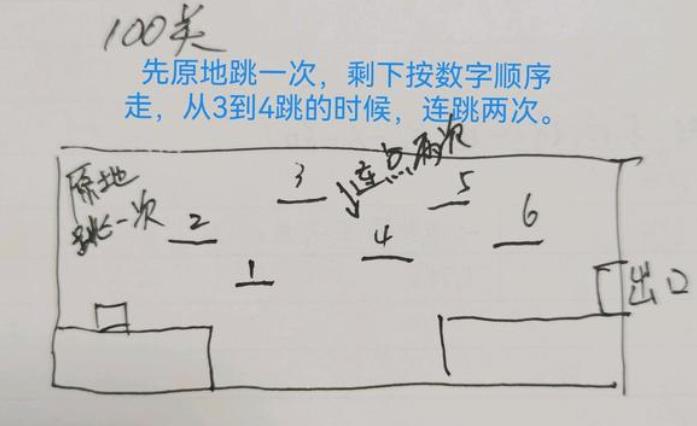 100关
先原地跳一次，剩下按数字顺序
走，从3到4跳的时候，连跳两次。
原地
跳一次
连点两次
3
5
2
6
4
1
出口